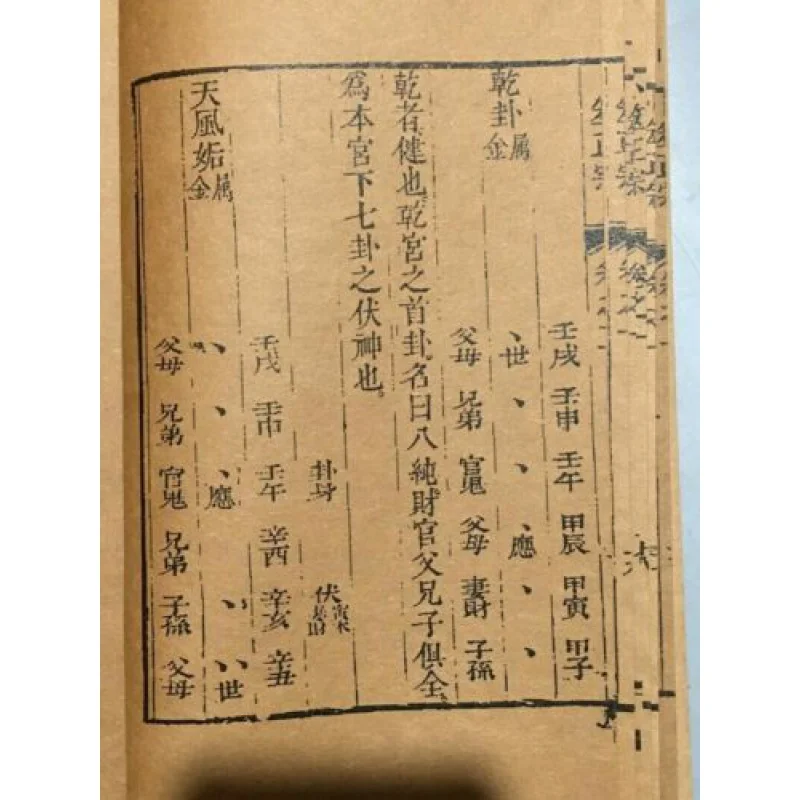 乾卦屬金
壬戌 壬申 壬午 甲辰 甲寅 甲子
、世 、 、 、應 、 、
父母 兄弟 官鬼 父母 妻財 子孫
乾者健也乾宮之首卦名曰八純財官父兄子俱全
爲本宮下七卦之伏神也。
卦身 伏寅木妻財
壬戌 壬申 壬午 辛酉 辛亥 辛丑
天風姤屬金
、 、 、應 、 、、世
父母 兄弟 官鬼 兄弟 子孫 父母